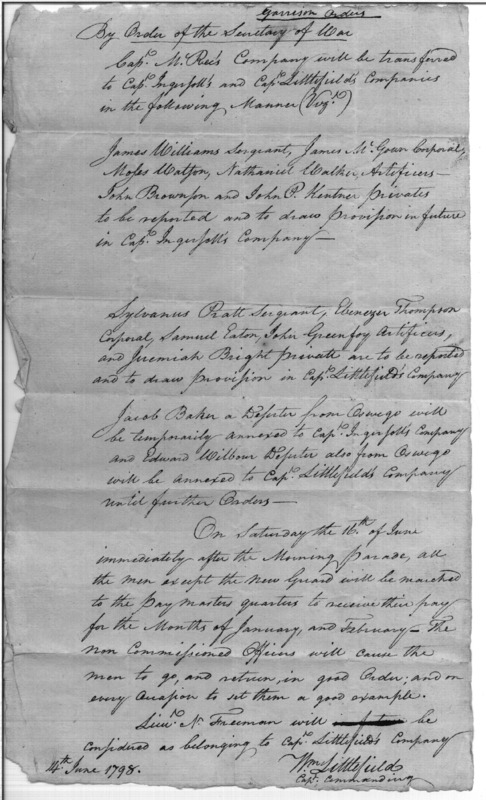 Garrison Orders
By Order of the Secretary of War
Capt. Mc Rees Company will be transferred
to Capt. Ingersoll's and Capt. Littlefield's Companies
in the following Manner (Vizt.)
James Williams Sergeant, James Mc Gown Corporal,
Moses Watson, Nathaniel Walker, Artificers —
John Brownson and John P. Kentner privates
to be reported and to draw provision in future
in Capt. Ingersoll's Company —
Sylvanus Pratt Sergeant, Ebenezer Thompson
Corporal, Samuel Eaton, John Greenfoy Artificers,
and Jeremiah Bright private are to be reported
and to draw provision in Capt. Littlefield's Company
Jacob Baker a Deserter from Oswego will
be temporarily annexed to Capt. Ingersoll's Company
and Edward Wilbour Deserter also from Oswego
will be annexed to Capt. Littlefield's Company
until further Orders —
On Saturday the 16th of June
immediately after the Morning Parade, all
the men except the New Guard will be marched
to the Pay masters quarters to receive their pay
for the Months of January, and February — The
Non Commissioned Officers will cause the
men to go, and return, in good Order; and on
every occasion to set them a good example.
Lieut. N. Freeman will be
considered as belonging to Capt. Littlefield's Company
14th June 1798.
Wm Littlefield
Capt. Commanding